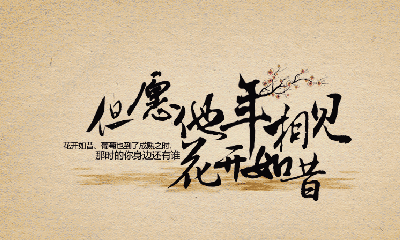 但愿他年相见
花开如昔
花开如昔、葡萄也到了成熟之时,
那时的你身边还有谁